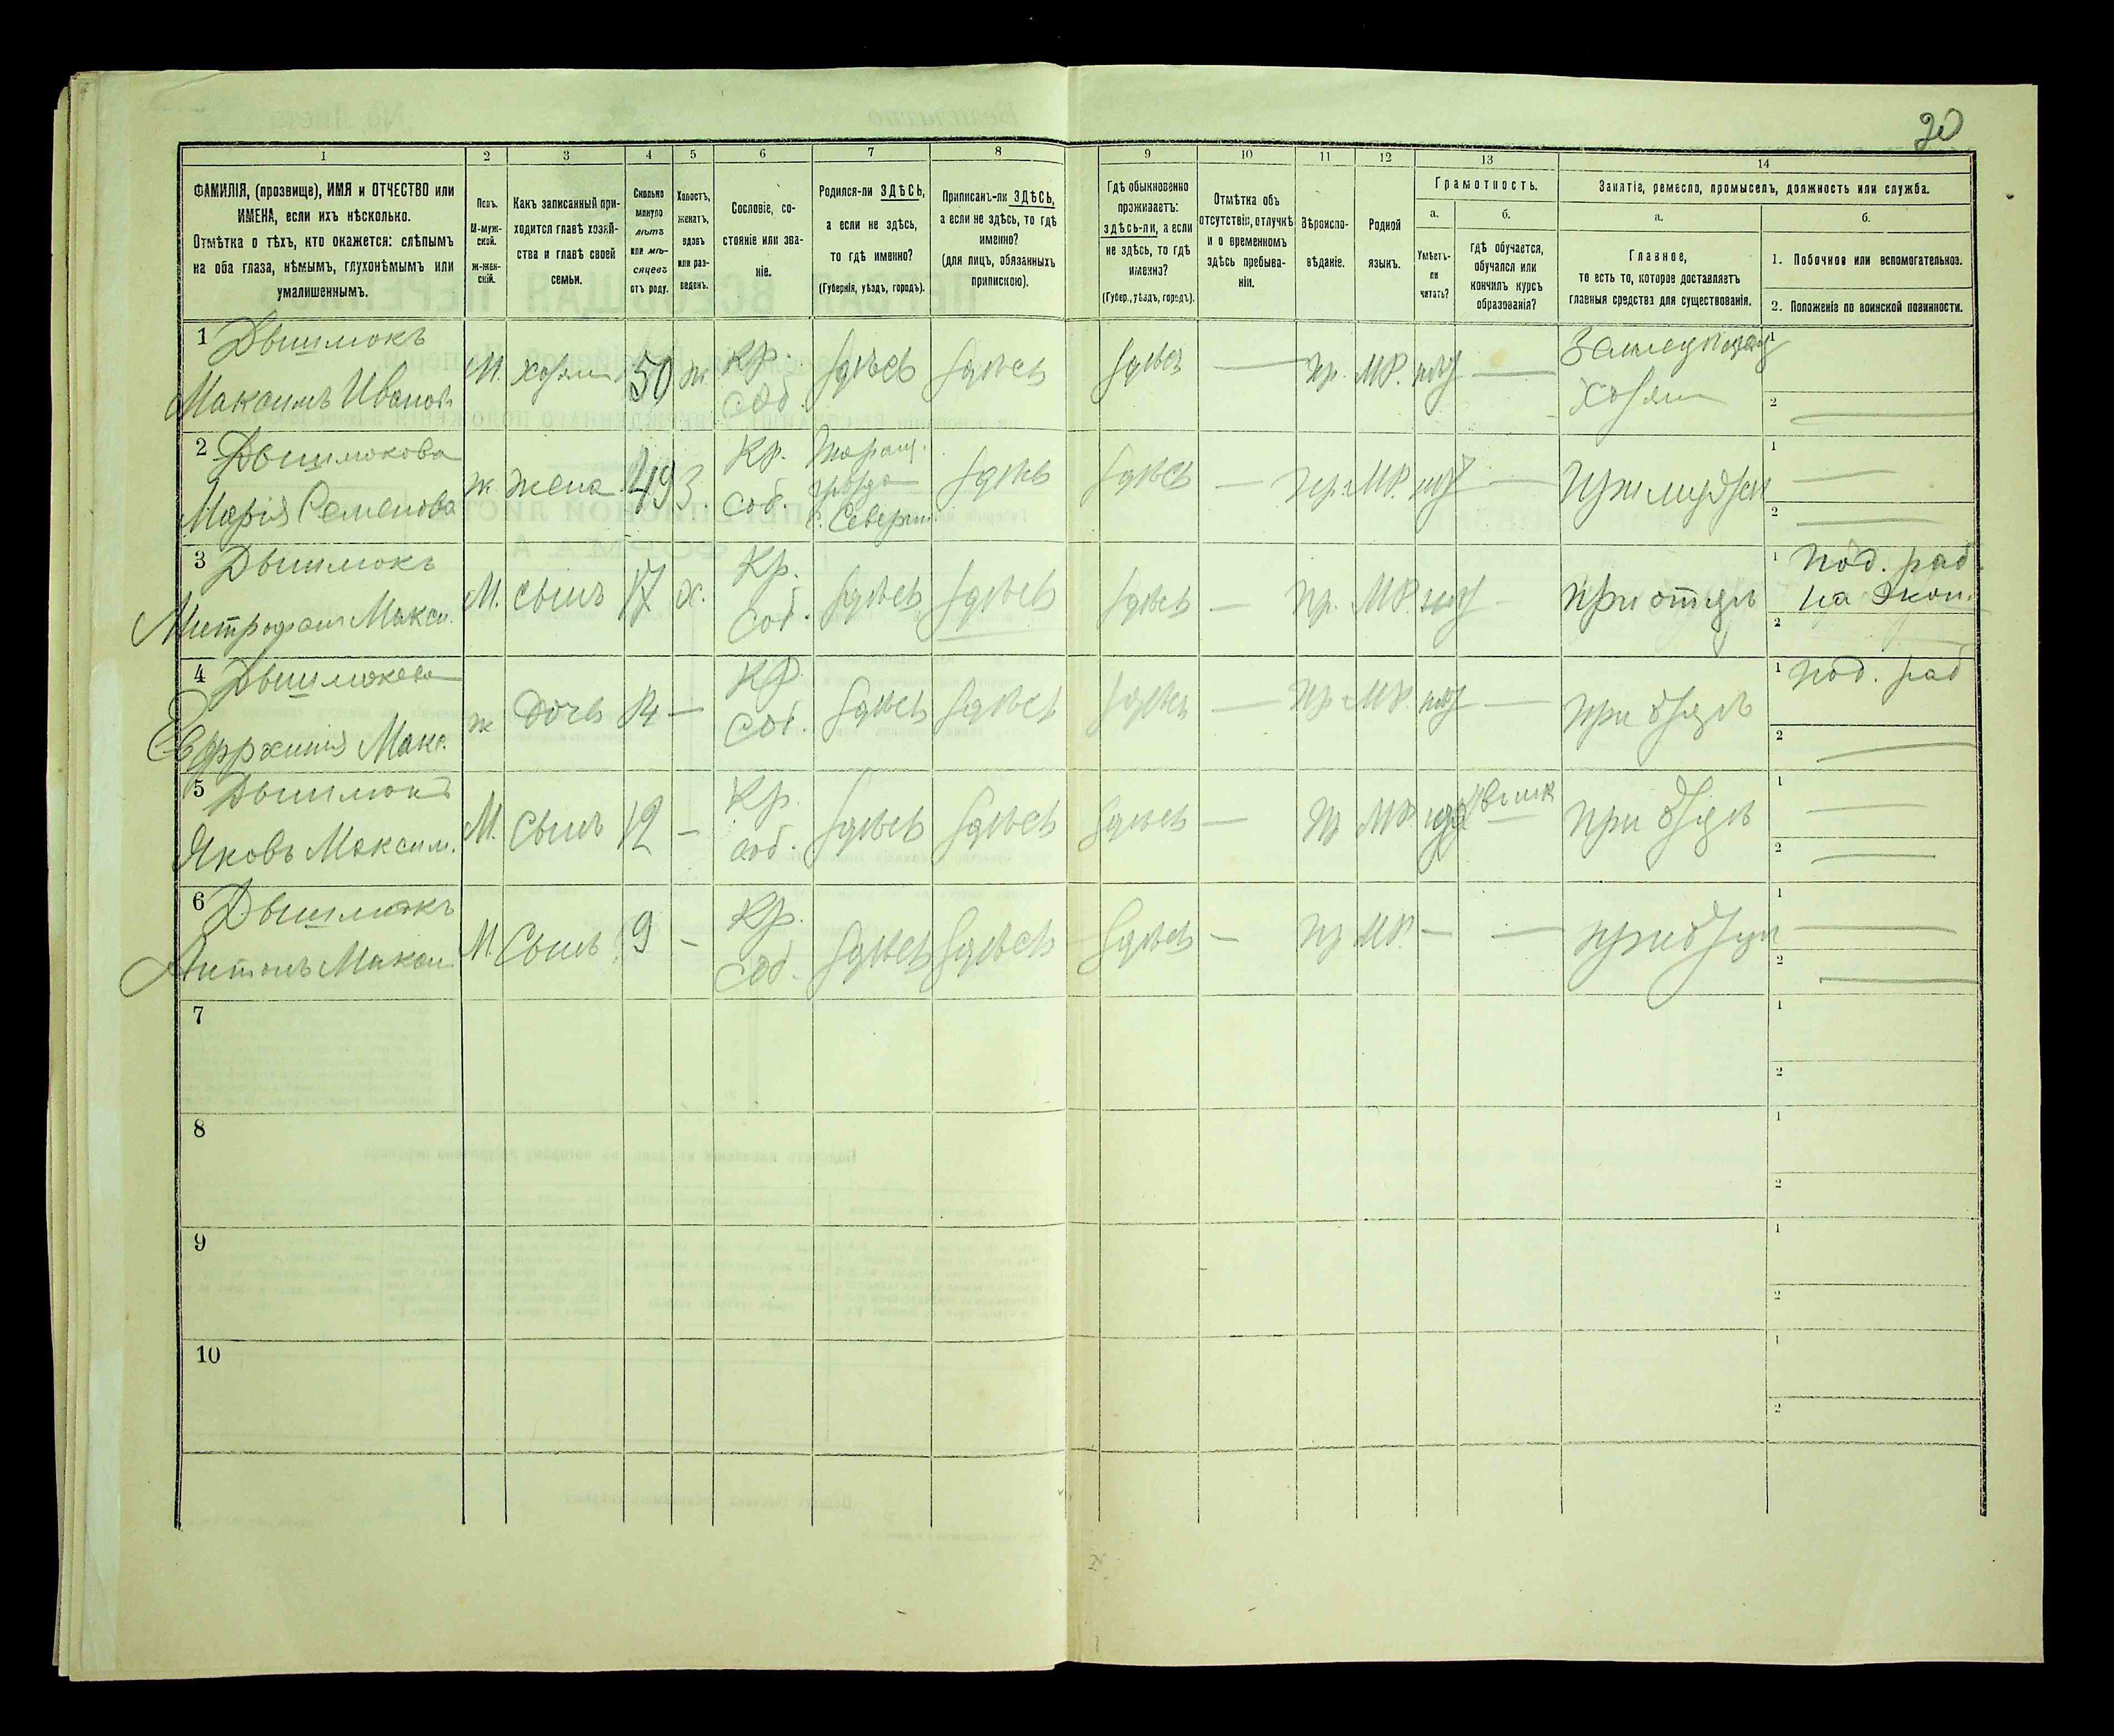 20
1 2 3 4 5 6 7 8 9 10 11 12 13 14
ФАМИЛІЯ, (прозвище), ИМЯ и ОТЧЕСТВО или
ИМЕНА, если ихъ нѣсколько.
Отмѣтка о тѣхъ, кто окажется: слѣпымъ
на оба глаза, нѣмымъ, глухонѣмымъ или
умалишеннымъ.
Полъ.
М-муж-
ской.
Ж-жен-
скій.
Какъ записанный при-
ходится главѣ хозяй-
ства и главѣ своей
семьи.
Сколько
минуло
лѣтъ
или мѣ-
сяцевъ
отъ роду.
Холостъ,
женатъ,
вдовъ
или раз-
веденъ.
Сословіе, со-
стояніе или зва-
ніе.
Родился-ли ЗДѢСЬ,
а если не здѣсь,
то гдѣ именно?
(Губернія, уѣздъ, городъ).
Приписанъ-ли ЗДѢСЬ,
а если не здѣсь, то гдѣ
именно?
(для лицъ, обязанныхъ
припискою).
Гдѣ обыкновенно
проживаетъ:
здѣсь-ли, а если
не здѣсь, то гдѣ
именно?
(Губер., уѣздъ, городъ).
Отмѣтка объ
отсутствіи, отлучкѣ
и о временномъ
здѣсь пребыва-
ніи.
Вѣроиспо-
вѣданіе.
Родной
языкъ.
Грамотность.
а.
Умѣетъ-
ли
читать?
б.
Гдѣ обучается,
обучался или
кончилъ курсъ
образованія?
Занятіе, ремесло, промыселъ, должность или служба.
а.
Главное,
то есть то, которое доставляетъ
главныя средства для существованія.
б.
1. Побочное или вспомогательное.
2. Положеніе по воинской повинности.
1 Дышлюкъ
Максимъ Иванов.
М. хозяин 50 ж. Кр. соб. здѣсь здѣсь здѣсь — пр. МР. нѣт —
Хозяин
1
2
2 Дышлюкова
Марія Семенова
ж жена 49 З. Кр. соб.
уѣзда
здѣсь здѣсь — пр. МР. нѣт —
1
2
3 Дышлюкъ
Митрофанъ Макси.
М. сынъ 17 х. Кр. соб. здѣсь здѣсь здѣсь — пр. МР. нѣт — при отцѣ
1 под. раб.
на экон.
2
4 Дышлюкова
Макс.
ж дочь 14 — Кр. соб. здѣсь здѣсь здѣсь — пр. МР. нѣт — при отцѣ
1 под. раб
2
5 Дышлюкъ
Яковъ Максим.
М. Сынъ 12 — Кр. соб. здѣсь здѣсь здѣсь — пр МР при отцѣ
1
2
6 Дышлюкъ
Антонъ Макси
М. Сынъ 9 — Кр. соб. здѣсь здѣсь здѣсь — пр МР. — — при отцѣ
1
2
7
1
2
8
1
2
9
1
2
10
1
2